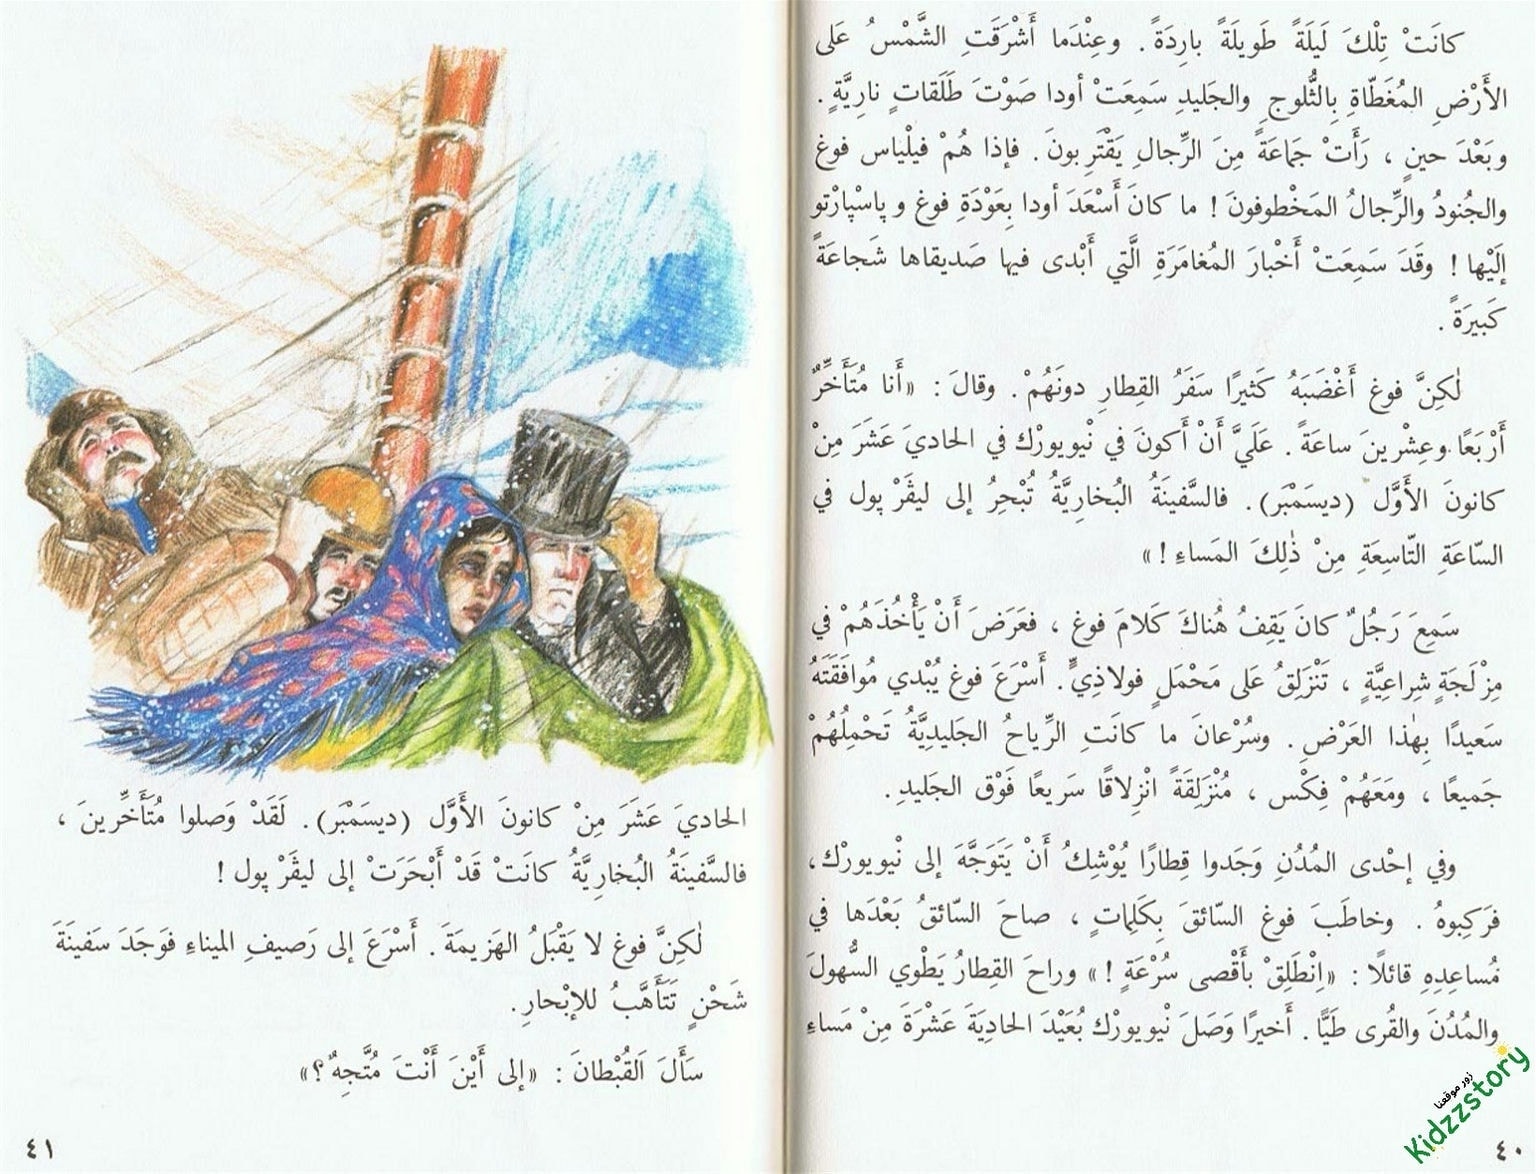 كانَتْ تِلْكَ لَيلَةً طَويلَةً بارِدَةً . وعِنْدَما أَشْرَقَتِ الشَّمْسُ عَلى
الأَرْضِ المُغَطّاةِ بِالثُّلوجِ والجَليدِ سَمِعَتْ أودا صَوْتَ طَلَقاتٍ نارِيَّةٍ .
وبَعْدَ حينٍ ، رَأَتْ جَماعَةً مِنَ الرِّجالِ يَقْتَرِبونَ . فإذا هُمْ فيلْياس فوغ
والجُنودُ والرِّجالُ المَخْطوفونَ ! ما كانَ أَسْعَدَ أودا بِعَوْدَةِ فوغ و پاسْپارْتو
إلَيْها ! وقَدَ سَمِعَتْ أَخْبارَ المُغامَرَةِ الَّتي أَبْدى فيها صَديقاها شَجاعَةً
كَبيرَةً .
لٰكِنَّ فوغ أَغْضَبَهُ كَثيرًا سَفَرُ القِطارِ دونَهُمْ . وقالَ : «أَنا مُتَأَخِّرٌ
أَرْبَعًا وعِشْرينَ ساعَةً . عَلَيَّ أَنْ أَكونَ في نْيويورْك في الحاديَ عَشَرَ مِنْ
كانونَ الأَوَّلِ (ديسَمْبَر) . فالسَّفينَةُ البُخارِيَّةُ تُبْحِرُ إلى ليڤَرْپول في
السّاعَةِ التّاسِعَةِ مِنْ ذٰلِكَ المَساءِ !»
سَمِعَ رَجُلٌ كانَ يَقِفُ هُناكَ كَلامَ فوغ ، فعَرَضَ أَنْ يَأْخُذَهُمْ في
مِزْلَجَةٍ شِراعِيَّةٍ ، تَنْزَلِقُ عَلى مَحْمَلٍ فولاذِيٍّ . أَسْرَعَ فوغ يُبْدي مُوافَقَتَهُ
سَعيدًا بِهٰذا العَرْضِ . وسُرْعانَ ما كانَتِ الرِّياحُ الجَليدِيَّةُ تَحْمِلُهُمْ
جَميعًا ، ومَعَهُمْ فِكْس ، مُنْزَلِقَةً انْزِلاقًا سَريعًا فَوْقَ الجَليدِ .
وفي إحْدى المُدُنِ وَجَدوا قِطارًا يُوْشِكُ أَنْ يَتَوَجَّهَ إلى نْيويورْك ،
فرَكِبوهُ . وخاطَبَ فوغ السّائقَ بِكَلِماتٍ ، صاحَ السّائقُ بَعْدَها في
مُساعِدِهِ قائلًا : «اِنْطَلِقْ بأَقْصى سُرْعَةٍ !» وراحَ القِطارُ يَطْوي السُّهولَ
والمُدُنَ والقُرى طَيًّا . أَخيرًا وَصَلَ نْيويورْك بُعَيْدَ الحادِيَةَ عَشْرَةَ مِنْ مَساءِ
زور موقعنا
Kidzzstory
٤٠
الحاديَ عَشَرَ مِنْ كانونَ الأَوَّلِ (ديسَمْبَر) . لَقَدْ وَصَلوا مُتَأَخِّرينَ ،
فالسَّفينَةُ البُخارِيَّةُ كانَتْ قَدْ أَبْحَرَتْ إلى ليڤَرْپول !
لٰكِنَّ فوغ لا يَقْبَلُ الهَزيمَةَ . أَسْرَعَ إلى رَصيفِ الميناءِ فوَجَدَ سَفينَةَ
شَحْنٍ تَتَأَهَّبُ للإبْحارِ .
سَأَلَ القُبْطانَ : «إلى أَيْنَ أَنْتَ مُتَّجِهٌ ؟»
٤١